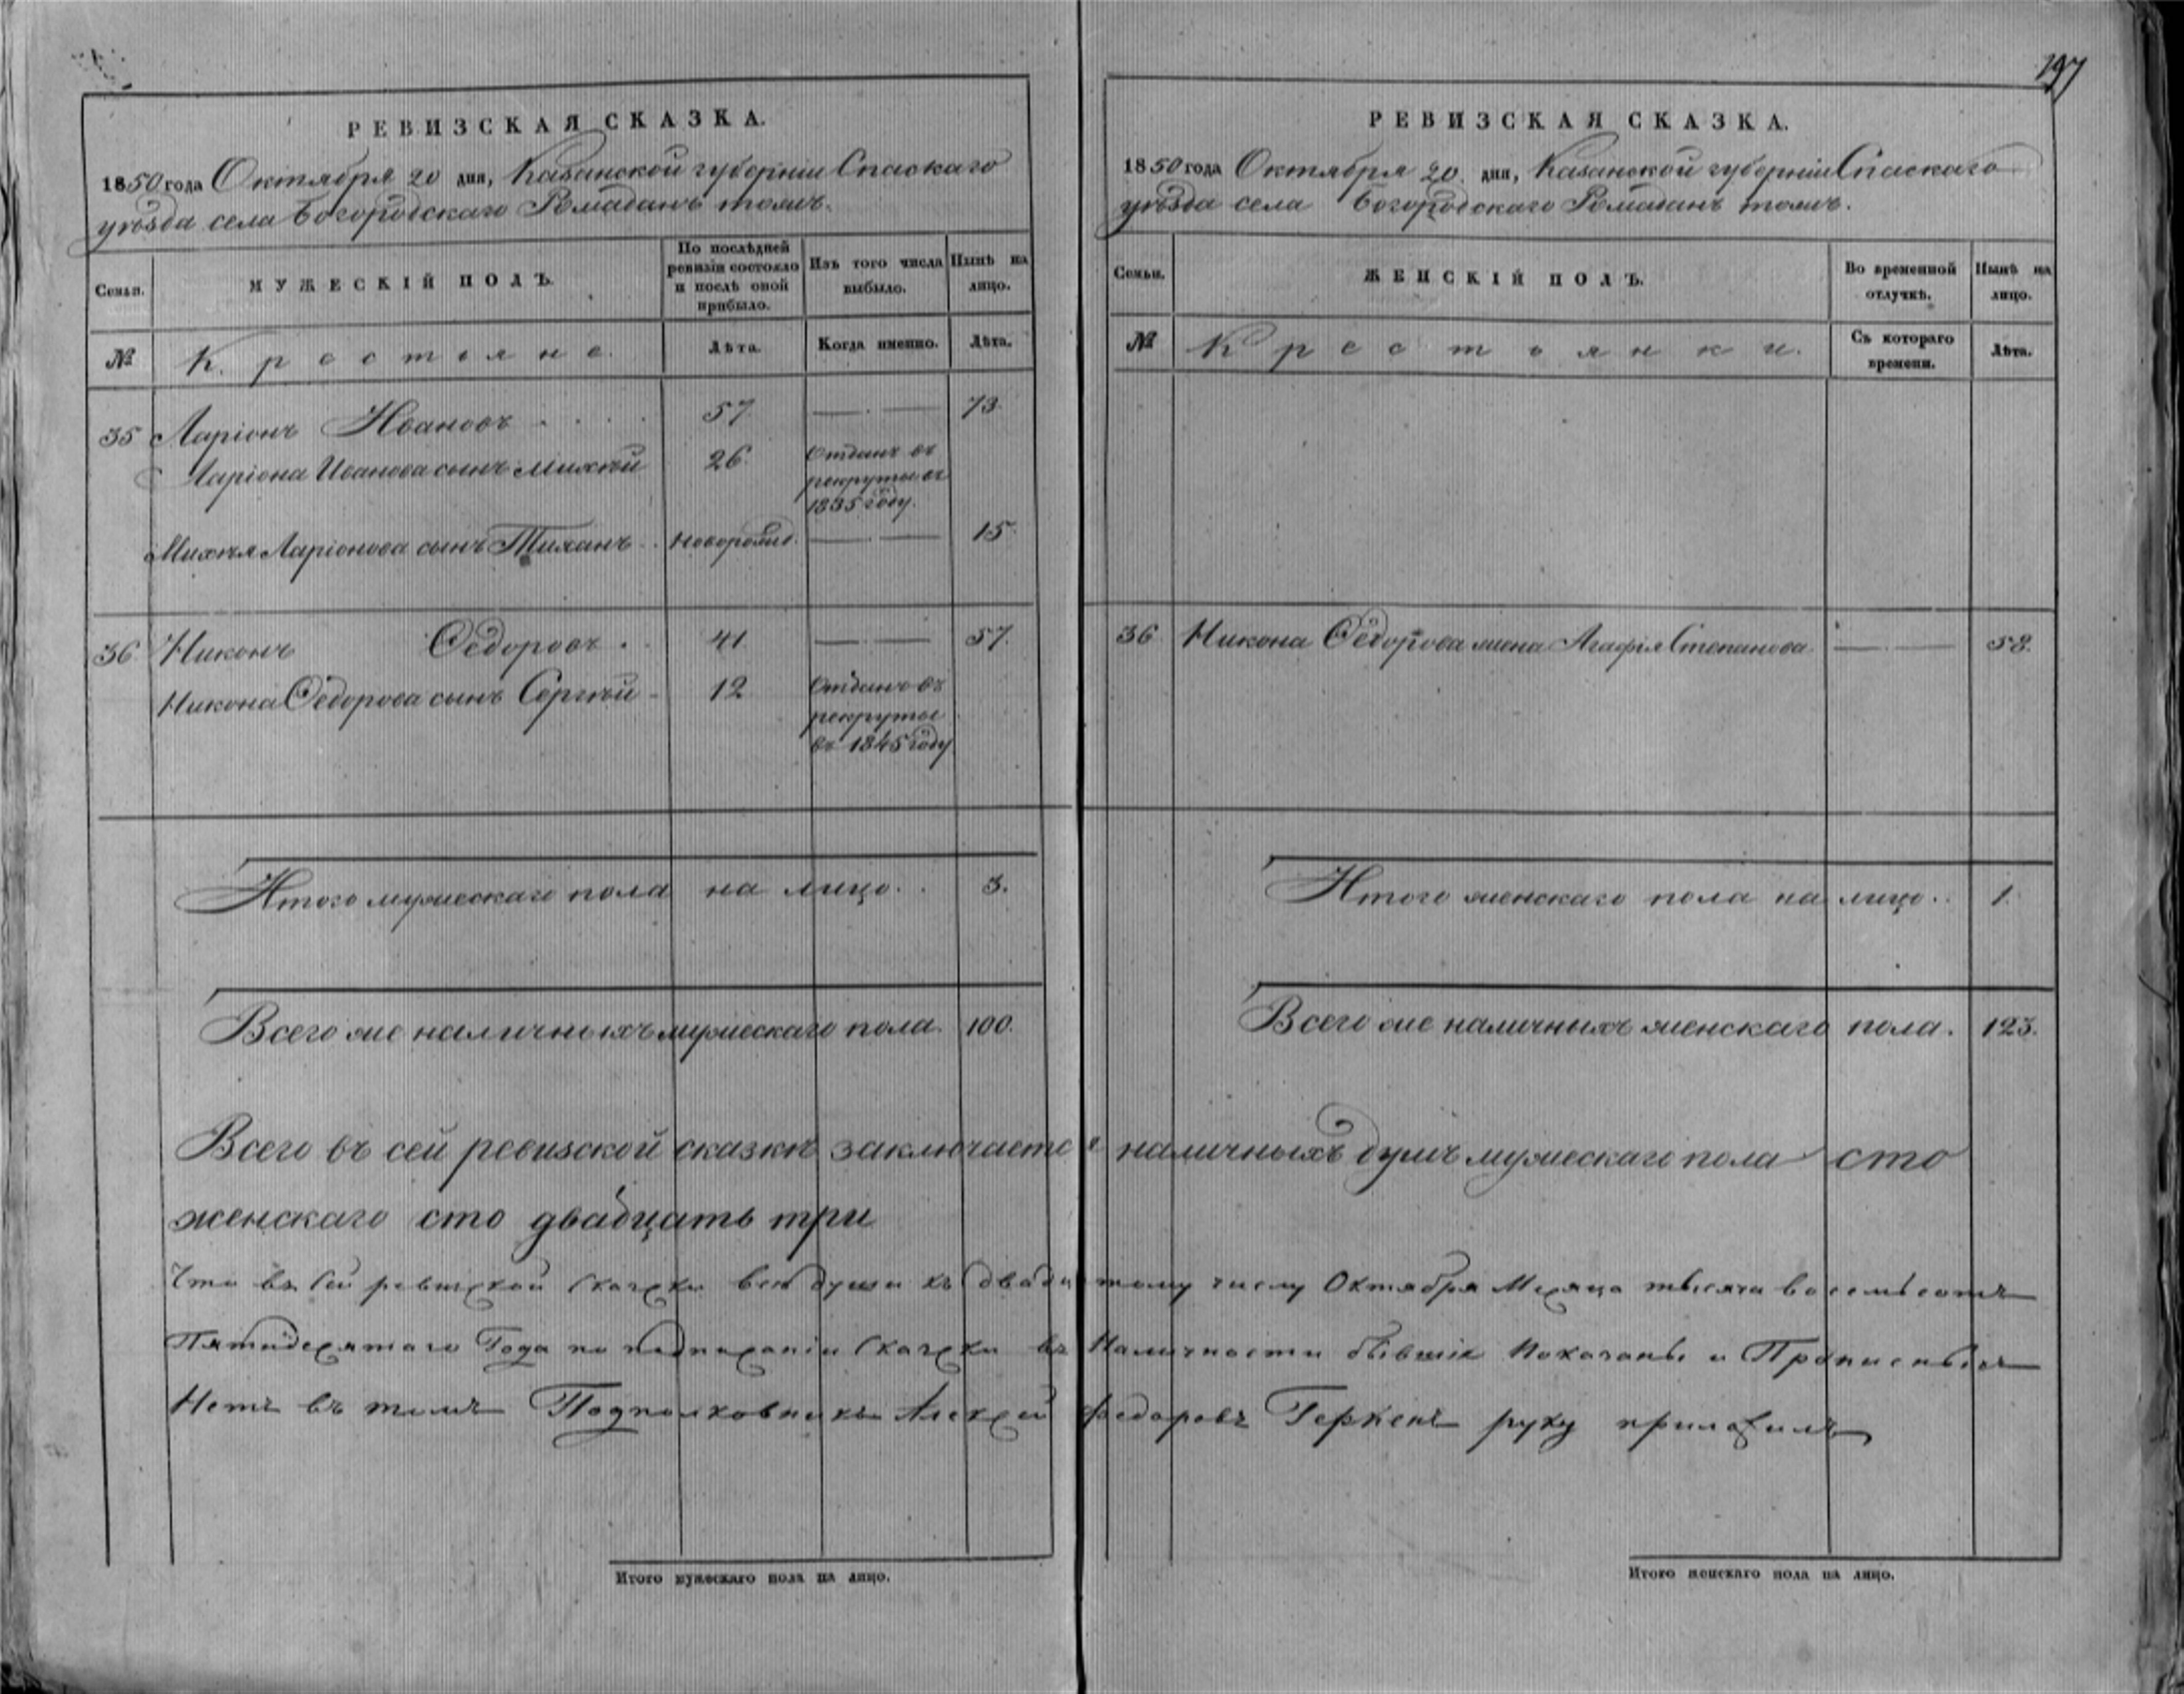 197
РЕВИЗСКАЯ СКАЗКА.
1850 года Октября 20 дня, Казанской губерніи Спаскаго
уѣзда села Богородскаго Ромаданъ тожъ.
Семьи.
МУЖЕСКІЙ ПОЛЪ.
По послѣдней
ревизіи состояло
и послѣ оной
прибыло.
Изъ того числа
выбыло.
Нынѣ на
лицо.
№
Крестьяне.
Лѣта.
Когда именно.
Лѣта.
35 Ларіонъ Ивановъ . . . . 57. — . — 73.
Ларіона Иванова сынъ Михѣй 26. Отданъ въ
рекруты въ
1835 году.
Михѣя Ларіонова сынъ Тиханъ . . новорожд. — . — 15.
36 Никонъ Ѳедоровъ . . 41. — . — 57.
Никона Ѳедорова сынъ Сергѣй 12 Отданъ въ
рекруты
въ 1845 году
Итого мужескаго пола на лицо . . 3.
Всего же наличныхъ мужескаго пола. 100.
РЕВИЗСКАЯ СКАЗКА.
1850 года Октября 20. дня, Казанской губерніи Спаскаго
уѣзда села Богородскаго Ромаданъ тожъ.
Семьи.
ЖЕНСКІЙ ПОЛЪ.
Во временной
отлучкѣ.
Нынѣ на
лицо.
№
Крестьянки.
Съ котораго
времени.
Лѣта.
36 Никона Ѳедорова жена Агафія Степанова — . — 58.
Итого женскаго пола на лицо . . 1.
Всего же наличныхъ женскаго пола. 123.
Всего въ сей ревизской сказкѣ заключается наличныхъ душъ мужескаго пола сто
женскаго сто двадцать три
Что въ сей ревизской скаски всѣ души къ двадцатому числу Октября Месяца тысяча восемьсотъ
Пятидесятаго Года по подписаніи Скаски въ Наличности бывшіе показаны и Прописныхъ
Нетъ въ томъ Подполковникъ Алексей Федоровъ Геркенъ руку приложилъ
Итого мужескаго пола на лицо.
Итого женскаго пола на лицо.